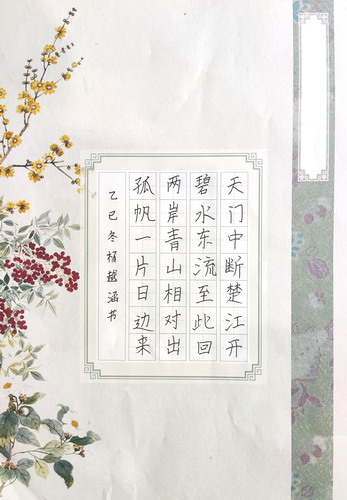 天门中断楚江开
碧水东流至此回
两岸青山相对出
孤帆一片日边来
乙巳冬杨越涵书